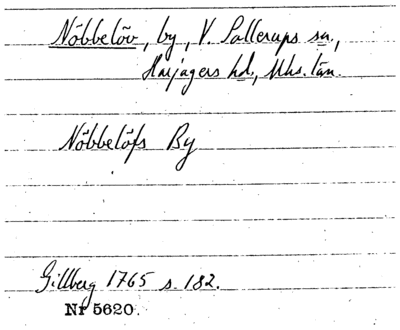 Nöbbelöv, by, V. Sallerups sn.,
Harjagers hd., Mhs. län.
Nöbbelöfs By
Gillberg 1765 s. 182.
Nr 5620.